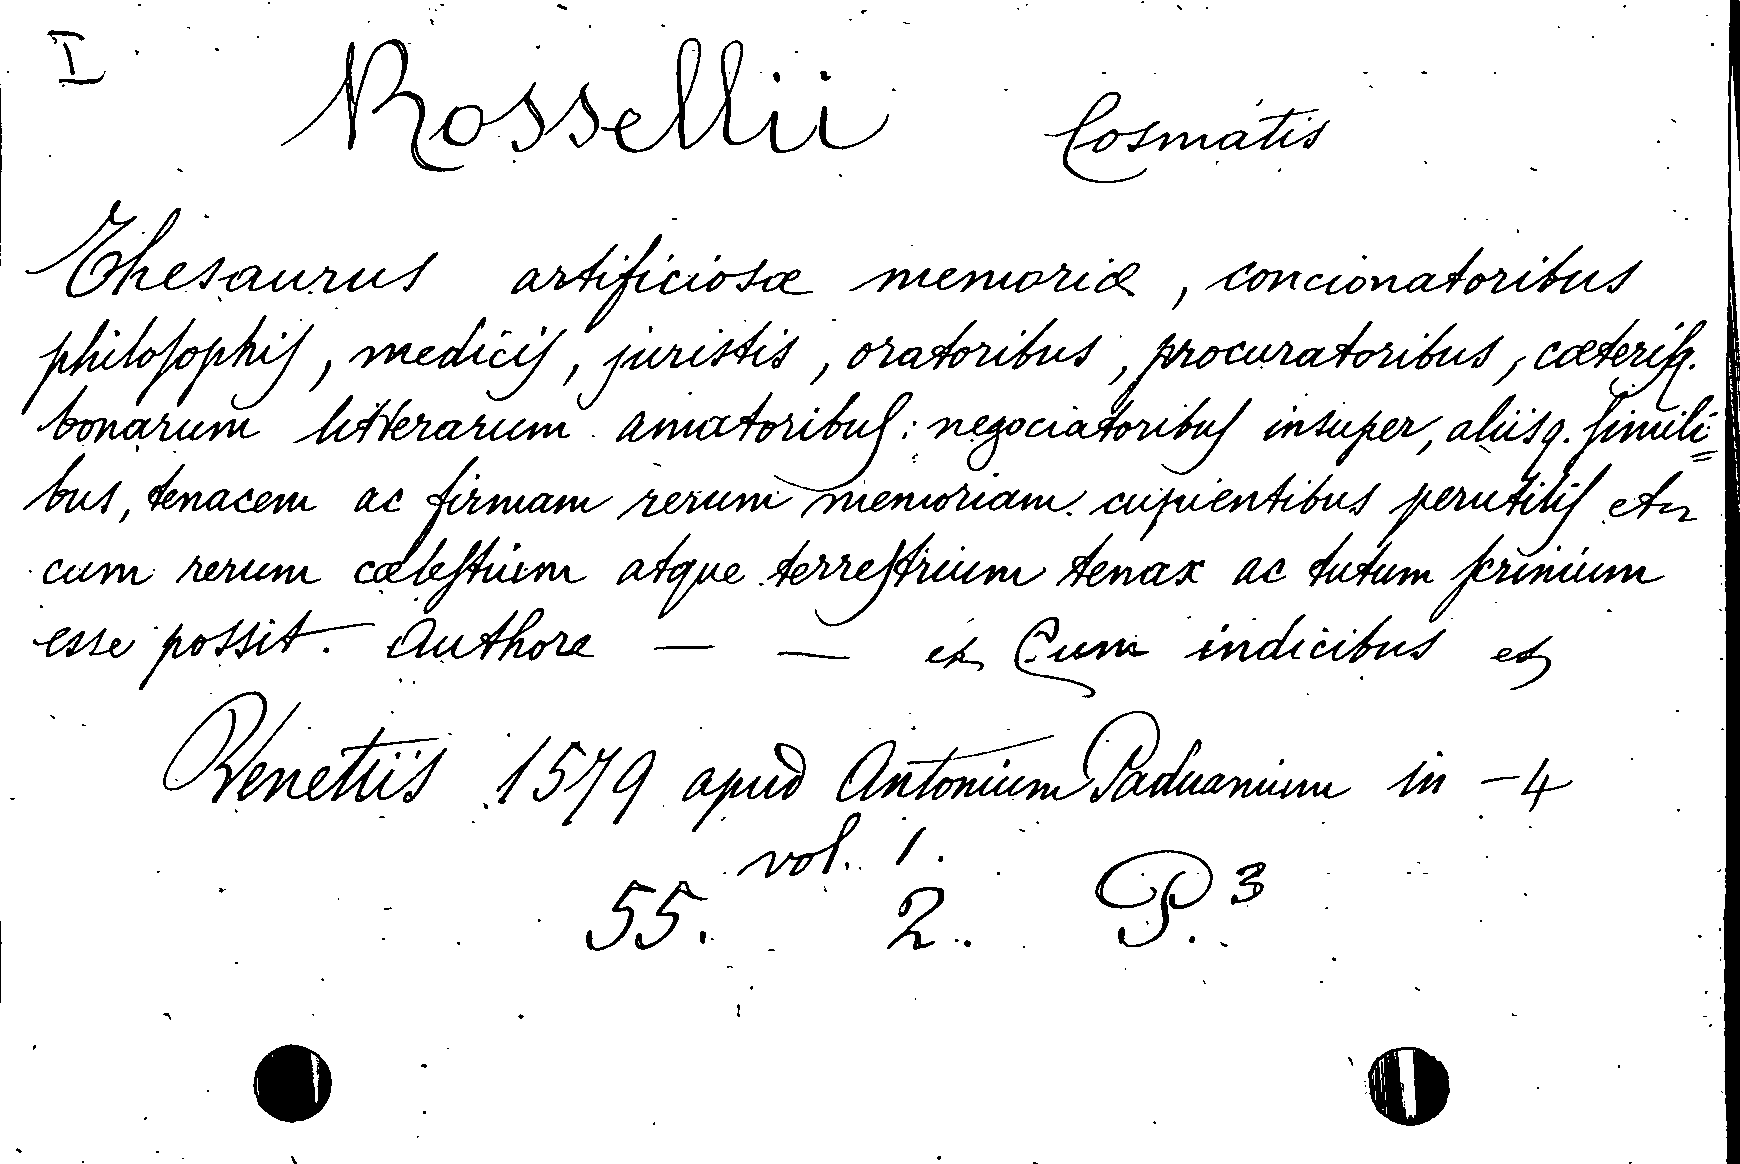 I
Rossellii Cosmatis
Thesaurus artificiosæ memoriæ, concionatoribus
philosophis, medicis, juristis, oratoribus, procuratoribus, cæterisq.
bonarum litterarum amatoribus: negociatoribus insuper, aliisq. simili=
bus, tenacem ac firmam rerum memoriam cupientibus perutilis etc
cum rerum cælestium atque terrestrium tenax ac tutum scrinium
esse possit. Authore — — etc Cum indicibus etc
Venetiis 1579 apud Antonium Paduanium in -4
vol. 1.
55. 2. P.3